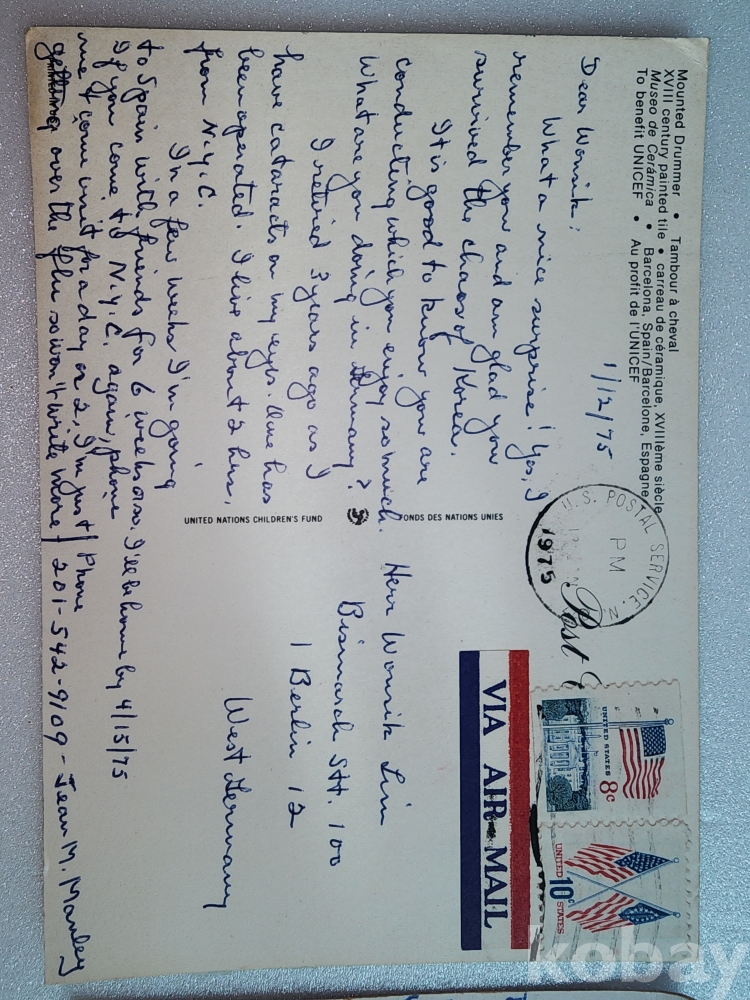 Mounted Drummer • Tambour à cheval
XVIII century painted tile • carreau de céramique, XVIIIème siècle
Museo de Cerámica • Barcelona, Spain/Barcelone, Espagne
To benefit UNICEF • Au profit de l'UNICEF
1/12/75
Dear Wonsik:
What a nice surprise! Yes, I
remember you and am glad you
survived the chaos of Korea.
It is good to know you are
conducting which you enjoy so much.
What are you doing in Germany?
I retired 3 years ago as I
have cataracts on my eyes. One has
been operated. I live about 2 hrs.
from N.Y.C.
In a few weeks I'm going
to Spain with friends for 6 weeks or so. I'll be home by 4/15/75
If you come to N.Y.C. again, phone
me & come visit for a day or 2. I'm just
getting over the flu so won't write more
Phone
201-542-9109 - Jean M. Manley
UNITED NATIONS CHILDREN'S FUND FONDS DES NATIONS UNIES
U.S. POSTAL SERVICE, N
PM
1975
VIA AIR MAIL
UNITED STATES
8c
UNITED STATES
10c
Herr Wonsik Lim
Bismarch Str. 100
1 Berlin 12
West Germany
kobay